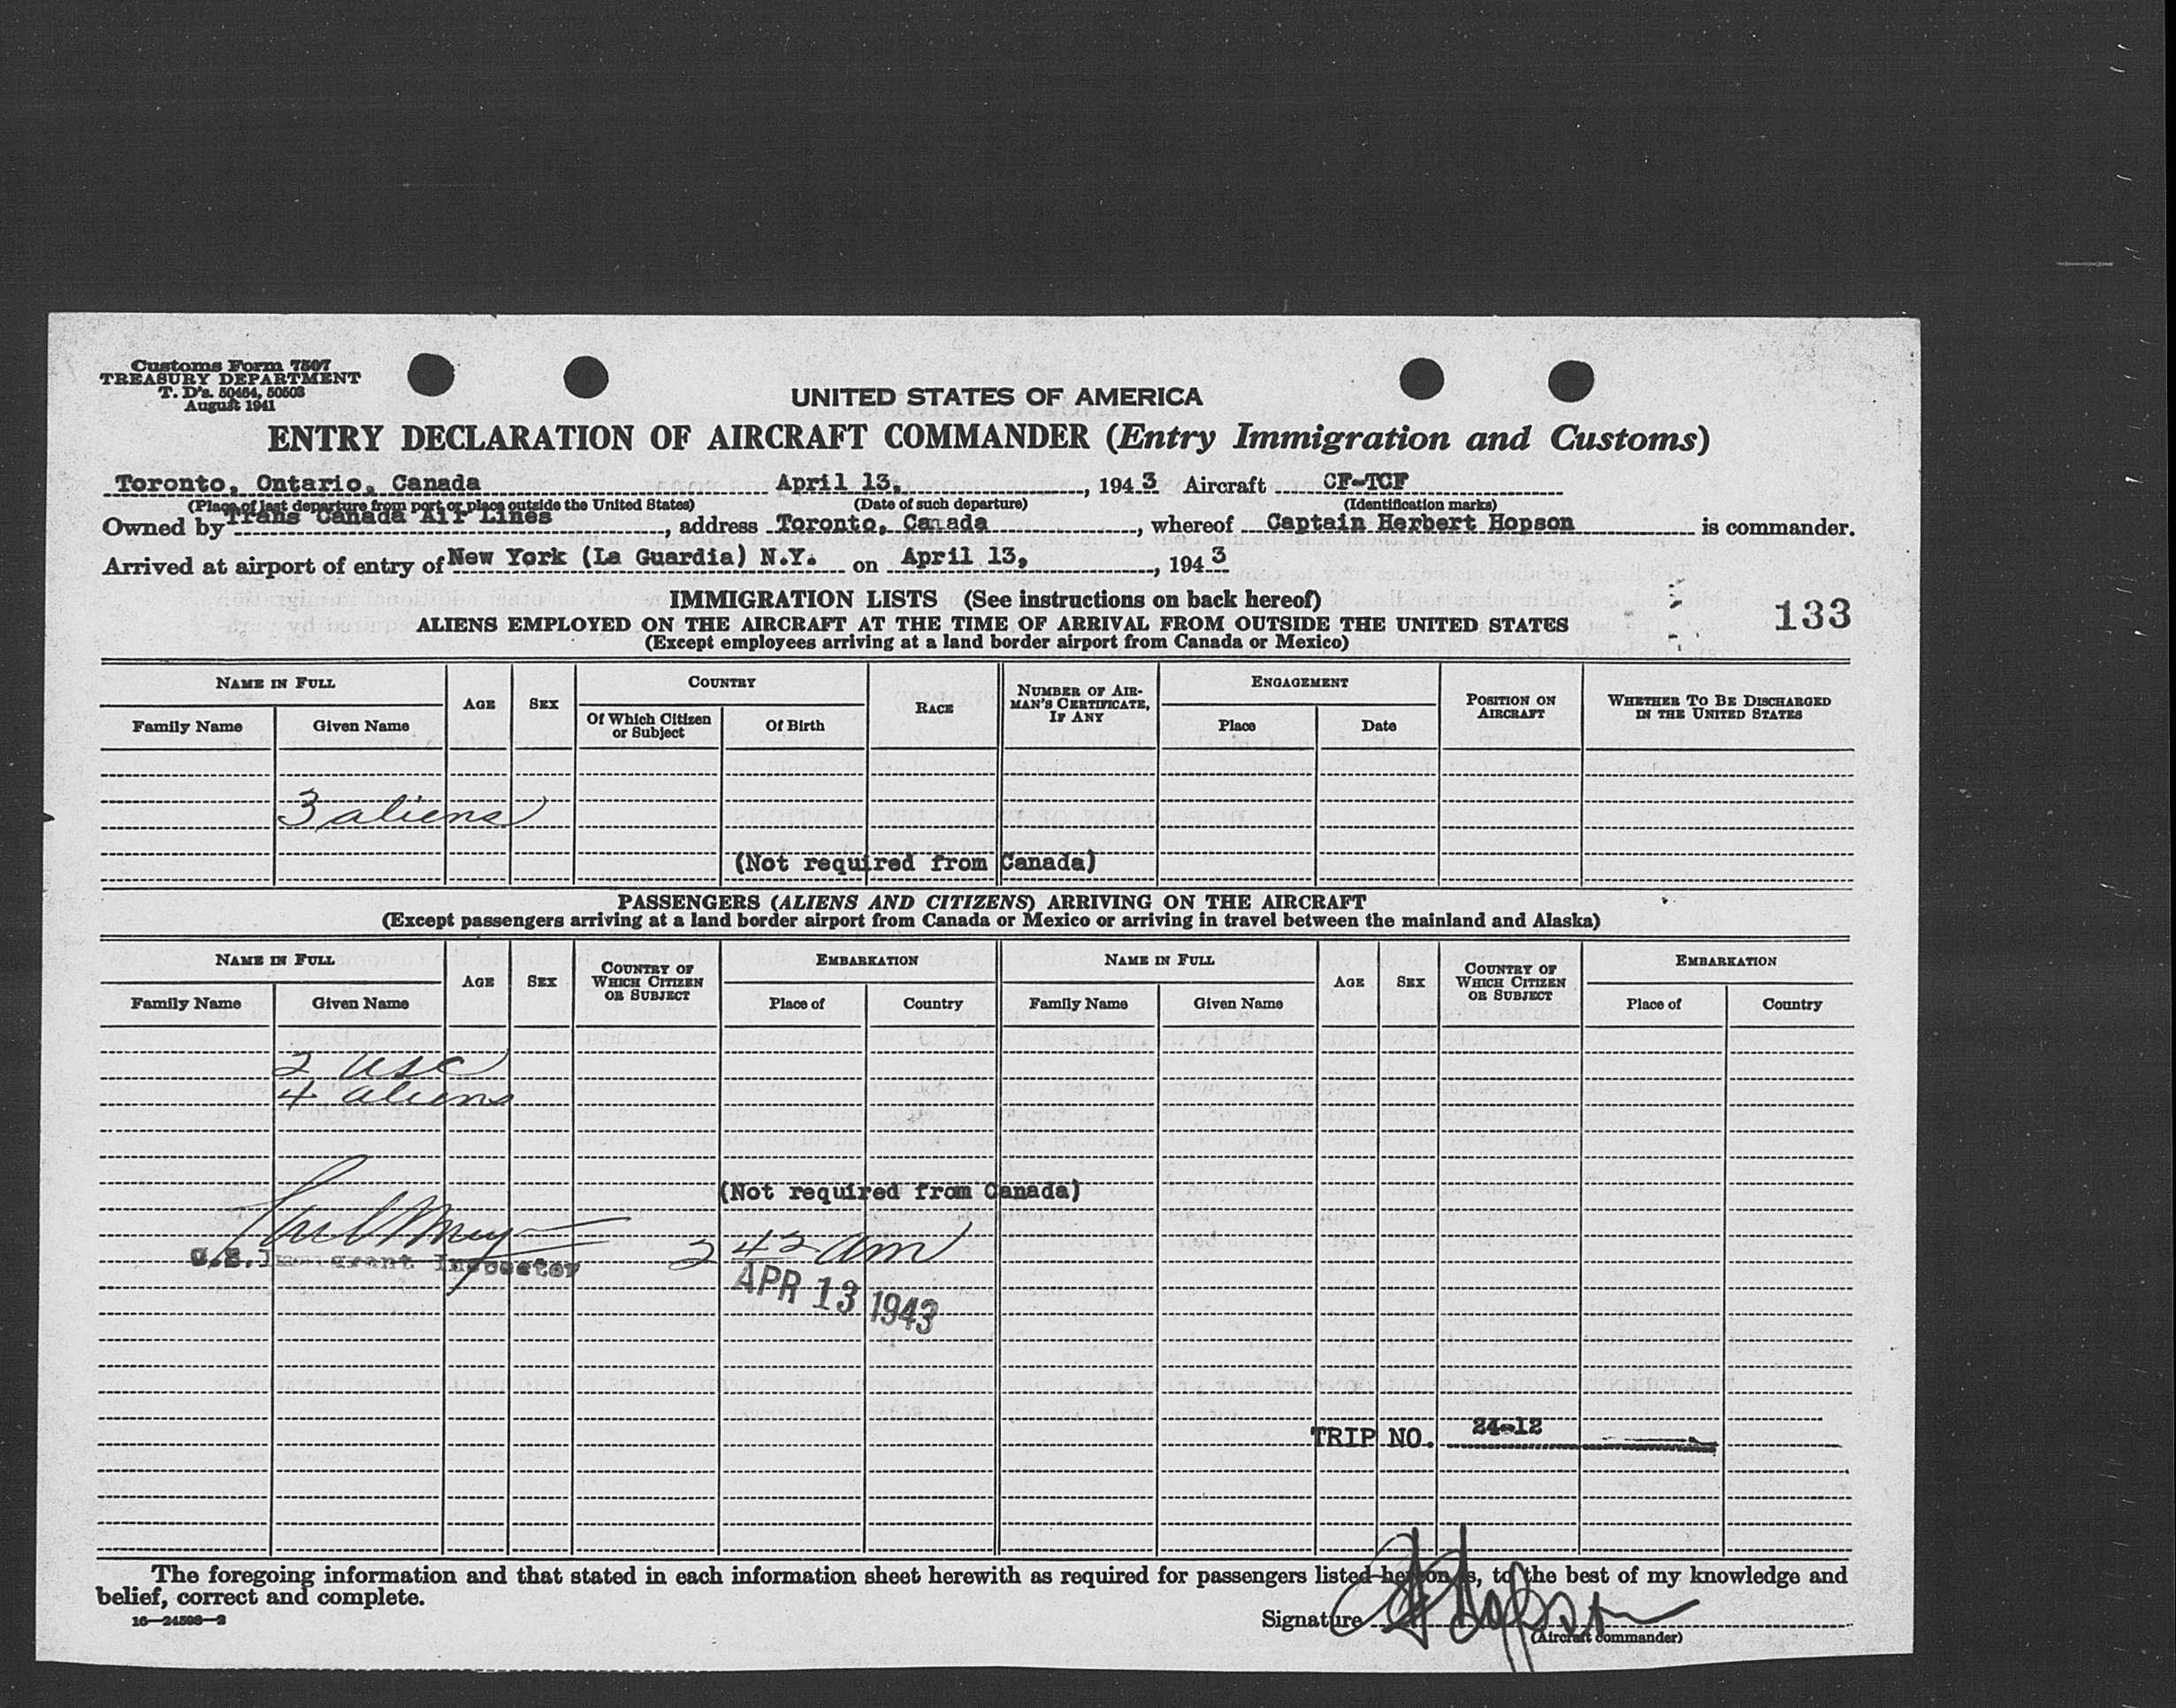 Customs Form 7507
TREASURY DEPARTMENT
T. D's. 50464, 50503
August 1941
UNITED STATES OF AMERICA
ENTRY DECLARATION OF AIRCRAFT COMMANDER (Entry Immigration and Customs)
Toronto, Ontario, Canada April 13, , 1943 Aircraft CF-TCF
(Place of last departure from port or place outside the United States) (Date of such departure) (Identification marks)
Owned by Trans Canada Air Lines , address Toronto, Canada , whereof Captain Herbert Hopson is commander.
Arrived at airport of entry of New York (La Guardia) N.Y. on April 13, , 1943
IMMIGRATION LISTS (See instructions on back hereof)
133
ALIENS EMPLOYED ON THE AIRCRAFT AT THE TIME OF ARRIVAL FROM OUTSIDE THE UNITED STATES
(Except employees arriving at a land border airport from Canada or Mexico)
NAME IN FULL AGE SEX COUNTRY RACE NUMBER OF AIRMAN'S CERTIFICATE, IF ANY ENGAGEMENT POSITION ON AIRCRAFT WHETHER TO BE DISCHARGED IN THE UNITED STATES
Family Name Given Name Of Which Citizen or Subject Of Birth Place Date
3 aliens
(Not required from Canada)
PASSENGERS (ALIENS AND CITIZENS) ARRIVING ON THE AIRCRAFT
(Except passengers arriving at a land border airport from Canada or Mexico or arriving in travel between the mainland and Alaska)
NAME IN FULL AGE SEX COUNTRY OF WHICH CITIZEN OR SUBJECT EMBARKATION NAME IN FULL AGE SEX COUNTRY OF WHICH CITIZEN OR SUBJECT EMBARKATION
Family Name Given Name Place of Country Family Name Given Name Place of Country
2 USC
4 aliens
(Not required from Canada)
2 42 am
U.S. Immigrant Inspector
APR 13 1943
TRIP NO. 24-12
The foregoing information and that stated in each information sheet herewith as required for passengers listed hereon is, to the best of my knowledge and
belief, correct and complete.
16—24598-2
Signature H Hopson
(Aircraft commander)